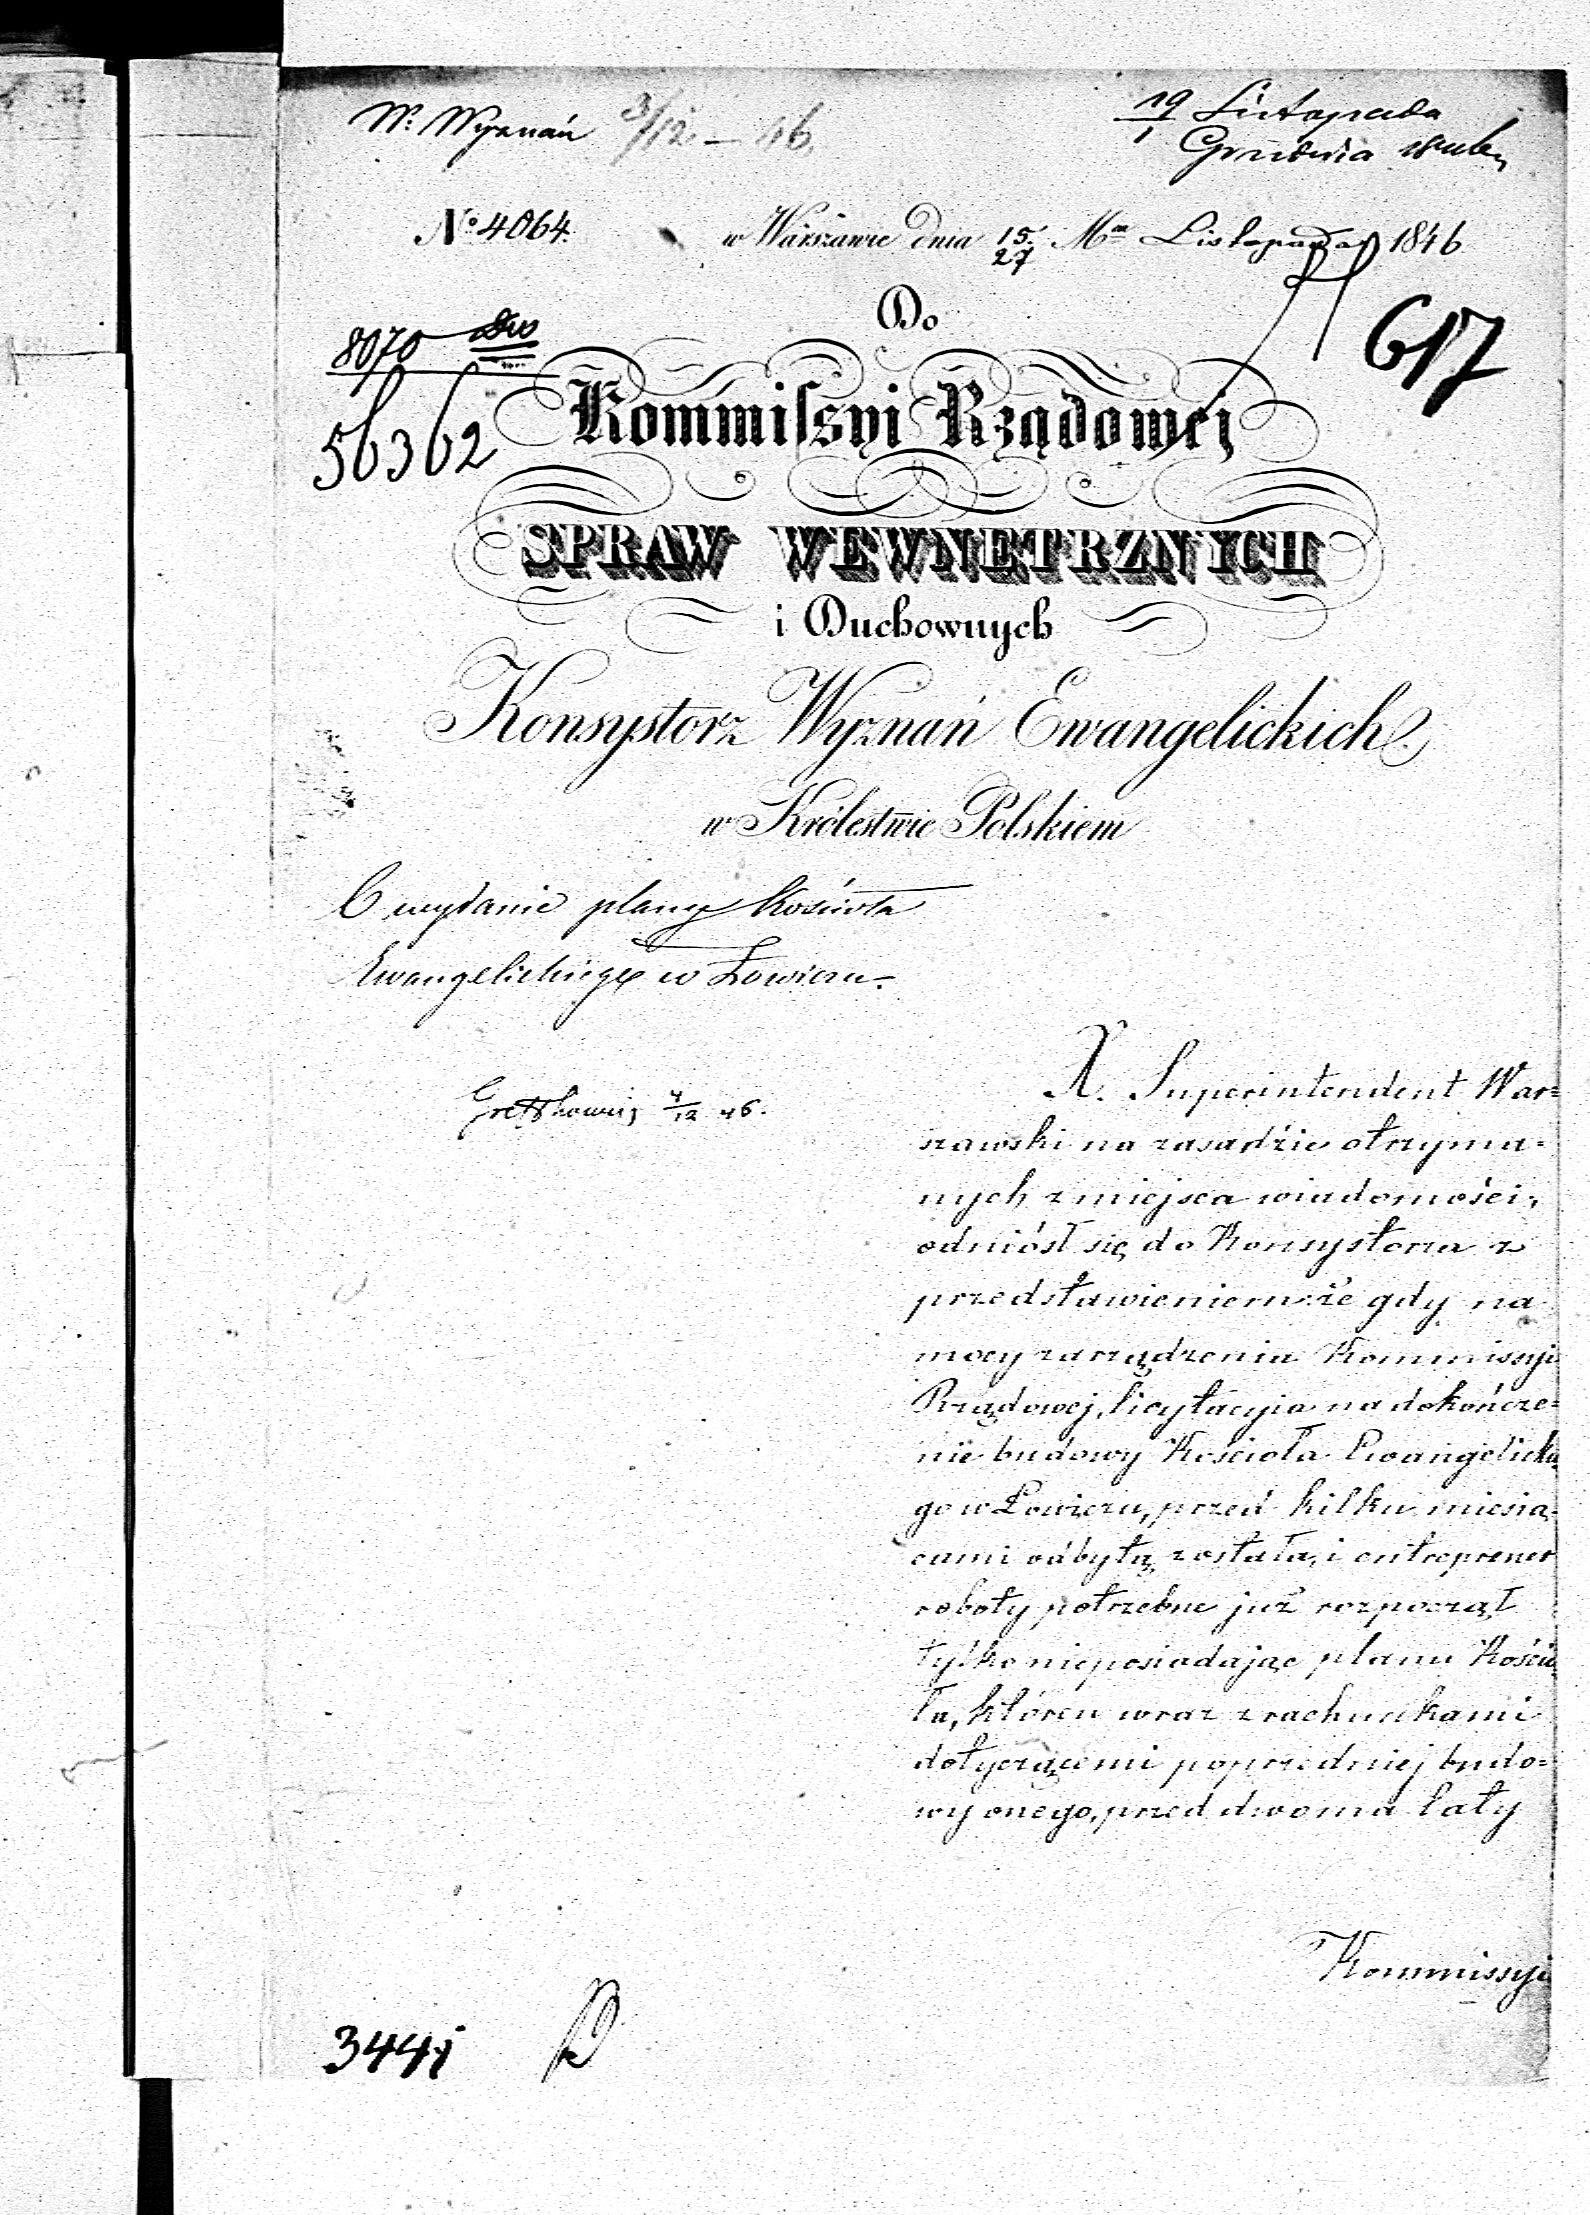 W. Wyznań 3/12 – 46.
19 Listopada
1 Grudnia
No 4064.
w Warszawie dnia 15/27 Mca Listopada 1846
Do
617
8070
Kommissyi Rządowej
56362
SPRAW WEWNĘTRZNYCH
i Duchownych
Konsystorz Wyznań Ewangelickich
w Królestwie Polskiem
O wydanie planu Kościoła
Ewangelickiego w Łowiczu.
4/12 46.
X. Superintendent War=
szawski na zasadzie otrzyma=
nych z miejsca wiadomości,
odniósł się do Konsystorza z
przedstawieniem że gdy na
mocy zarządzenia Kommissyi
Rządowej, licytacyia na dokończe=
nie budowy Kościoła Ewangelickie
go w Łowiczu, przed kilku miesią=
cami odbytą została, i entreprener
roboty potrzebne już rozpoczął
tylko nieposiadając planu Kościo
ła, któren wraz z rachunkami
dotyczącemi poprzedniej budo=
wy onego, przed dwoma laty
Kommissyi